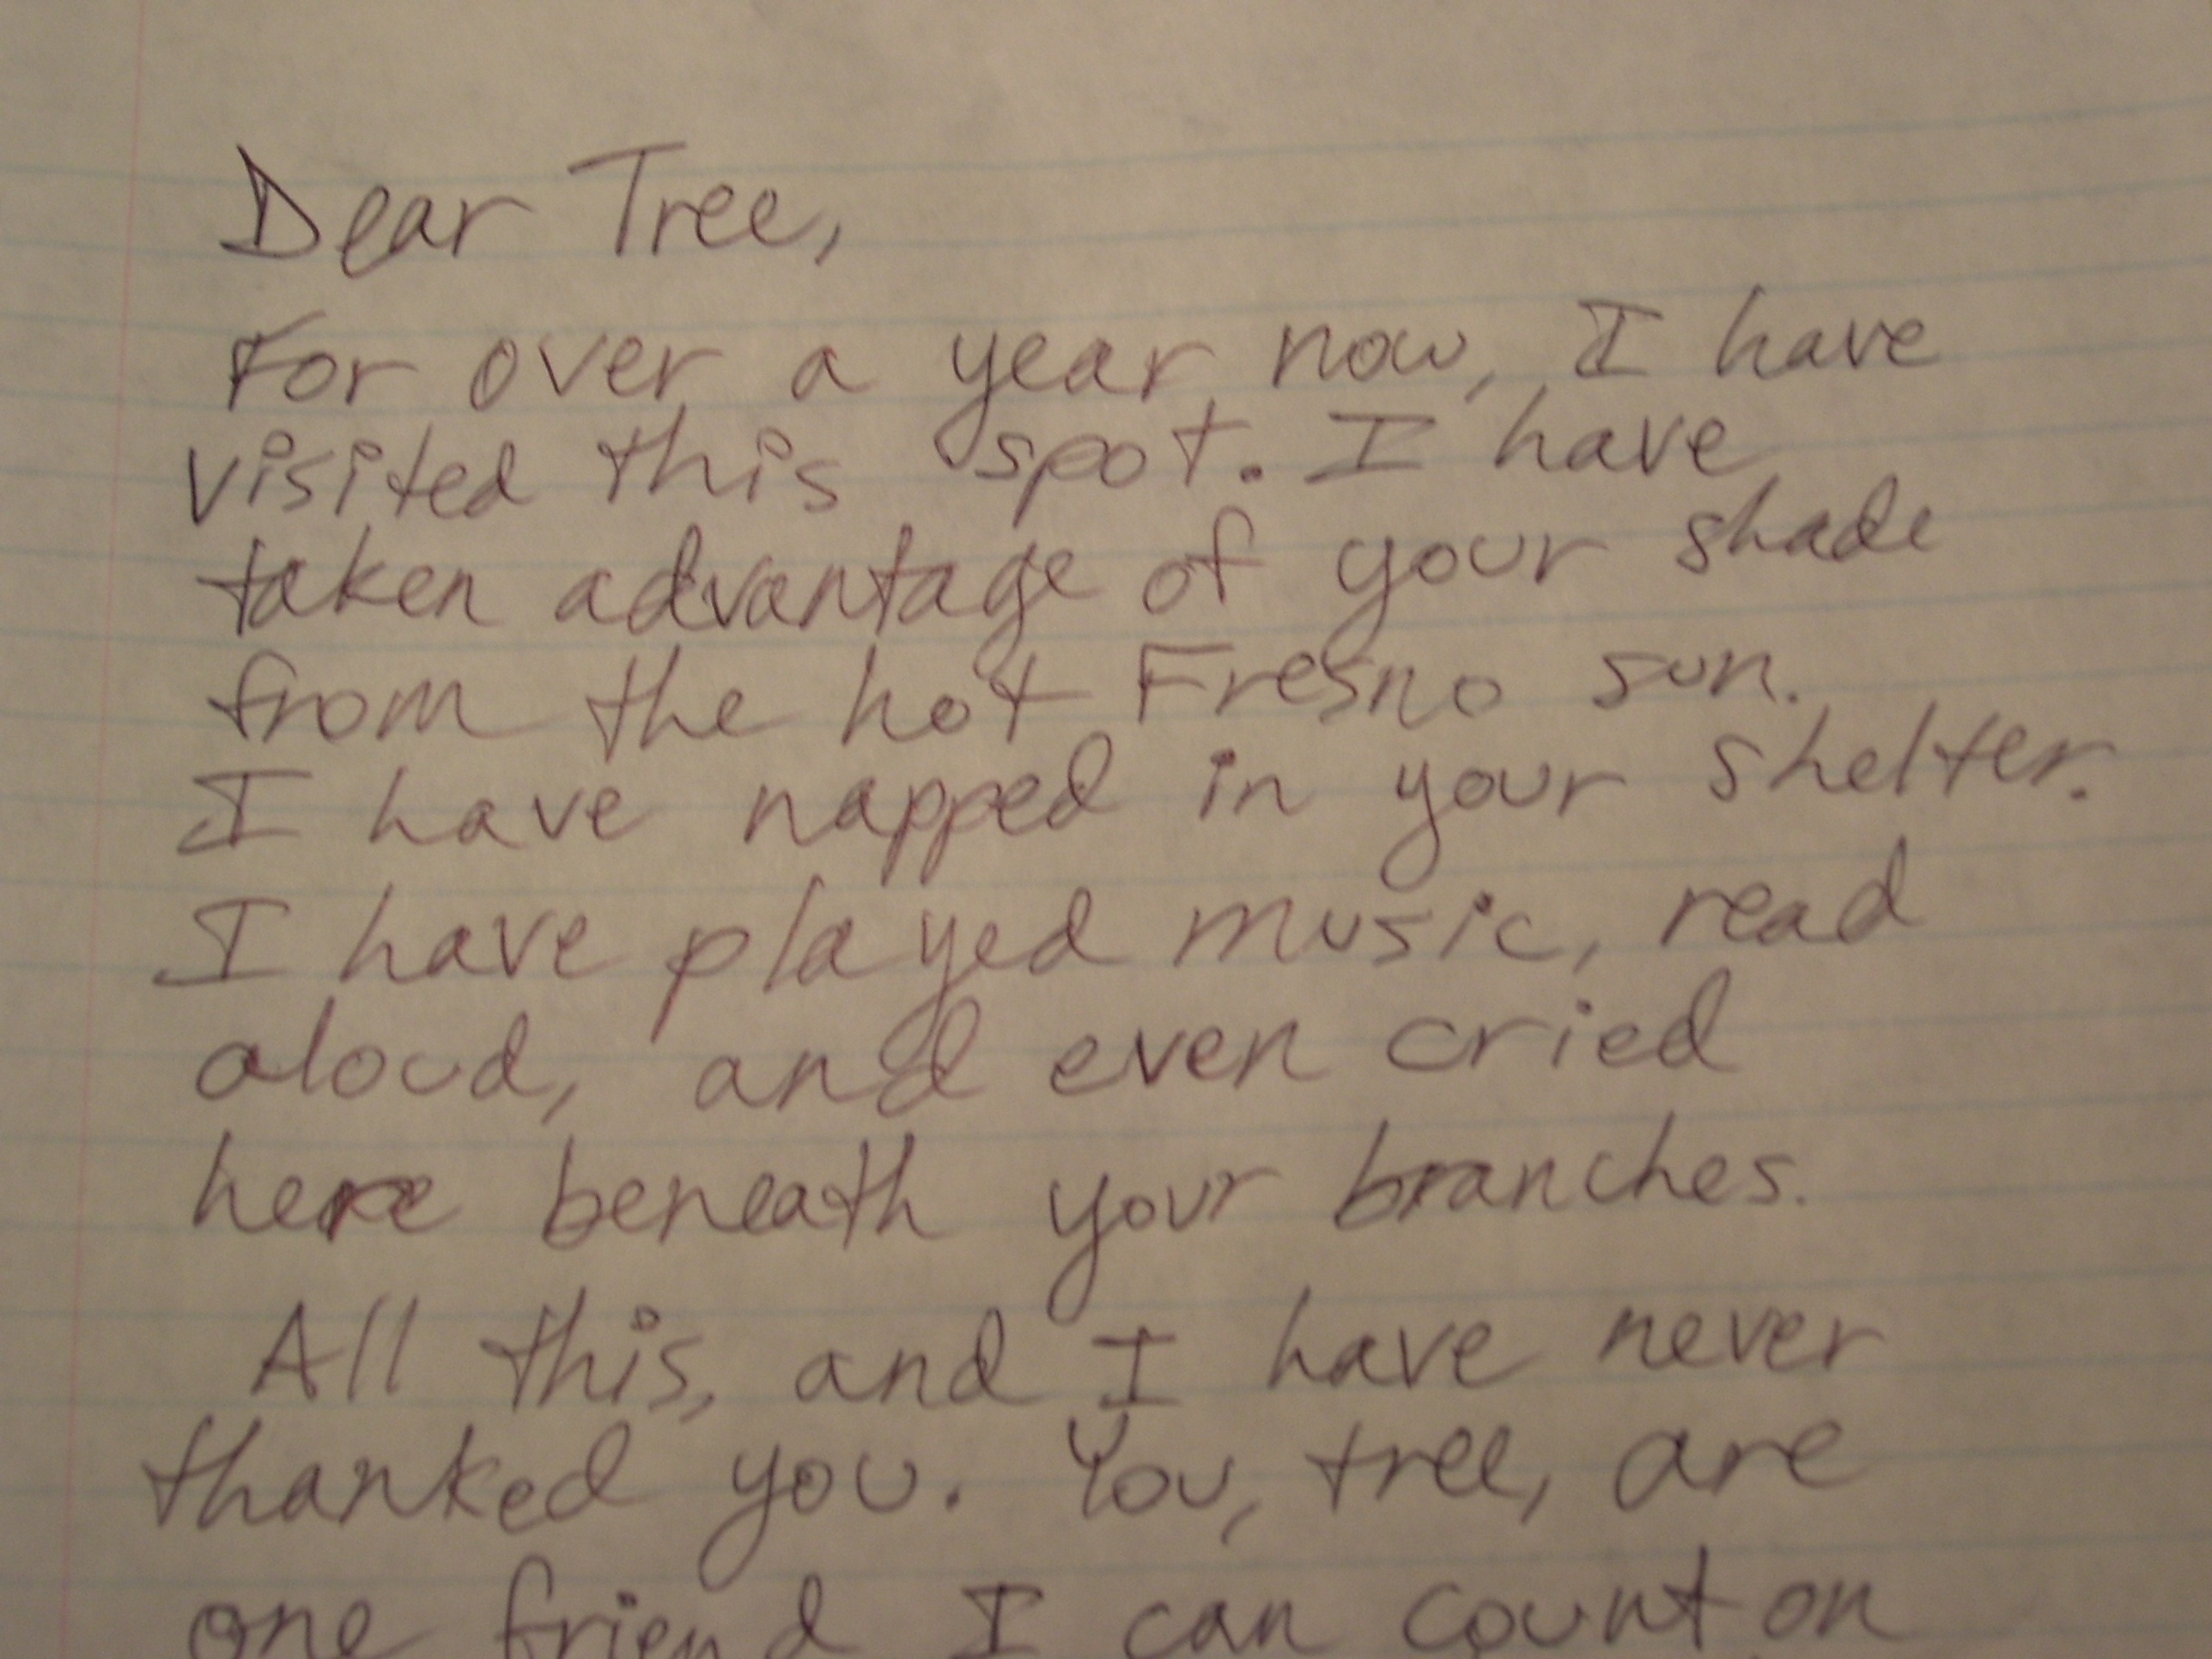 Dear Tree,
For over a year now, I have
visited this spot. I have
taken advantage of your shade
from the hot Fresno sun.
I have napped in your shelter.
I have played music, read
aloud, and even cried
here beneath your branches.
All this, and I have never
thanked you. You, tree, are
one friend I can count on